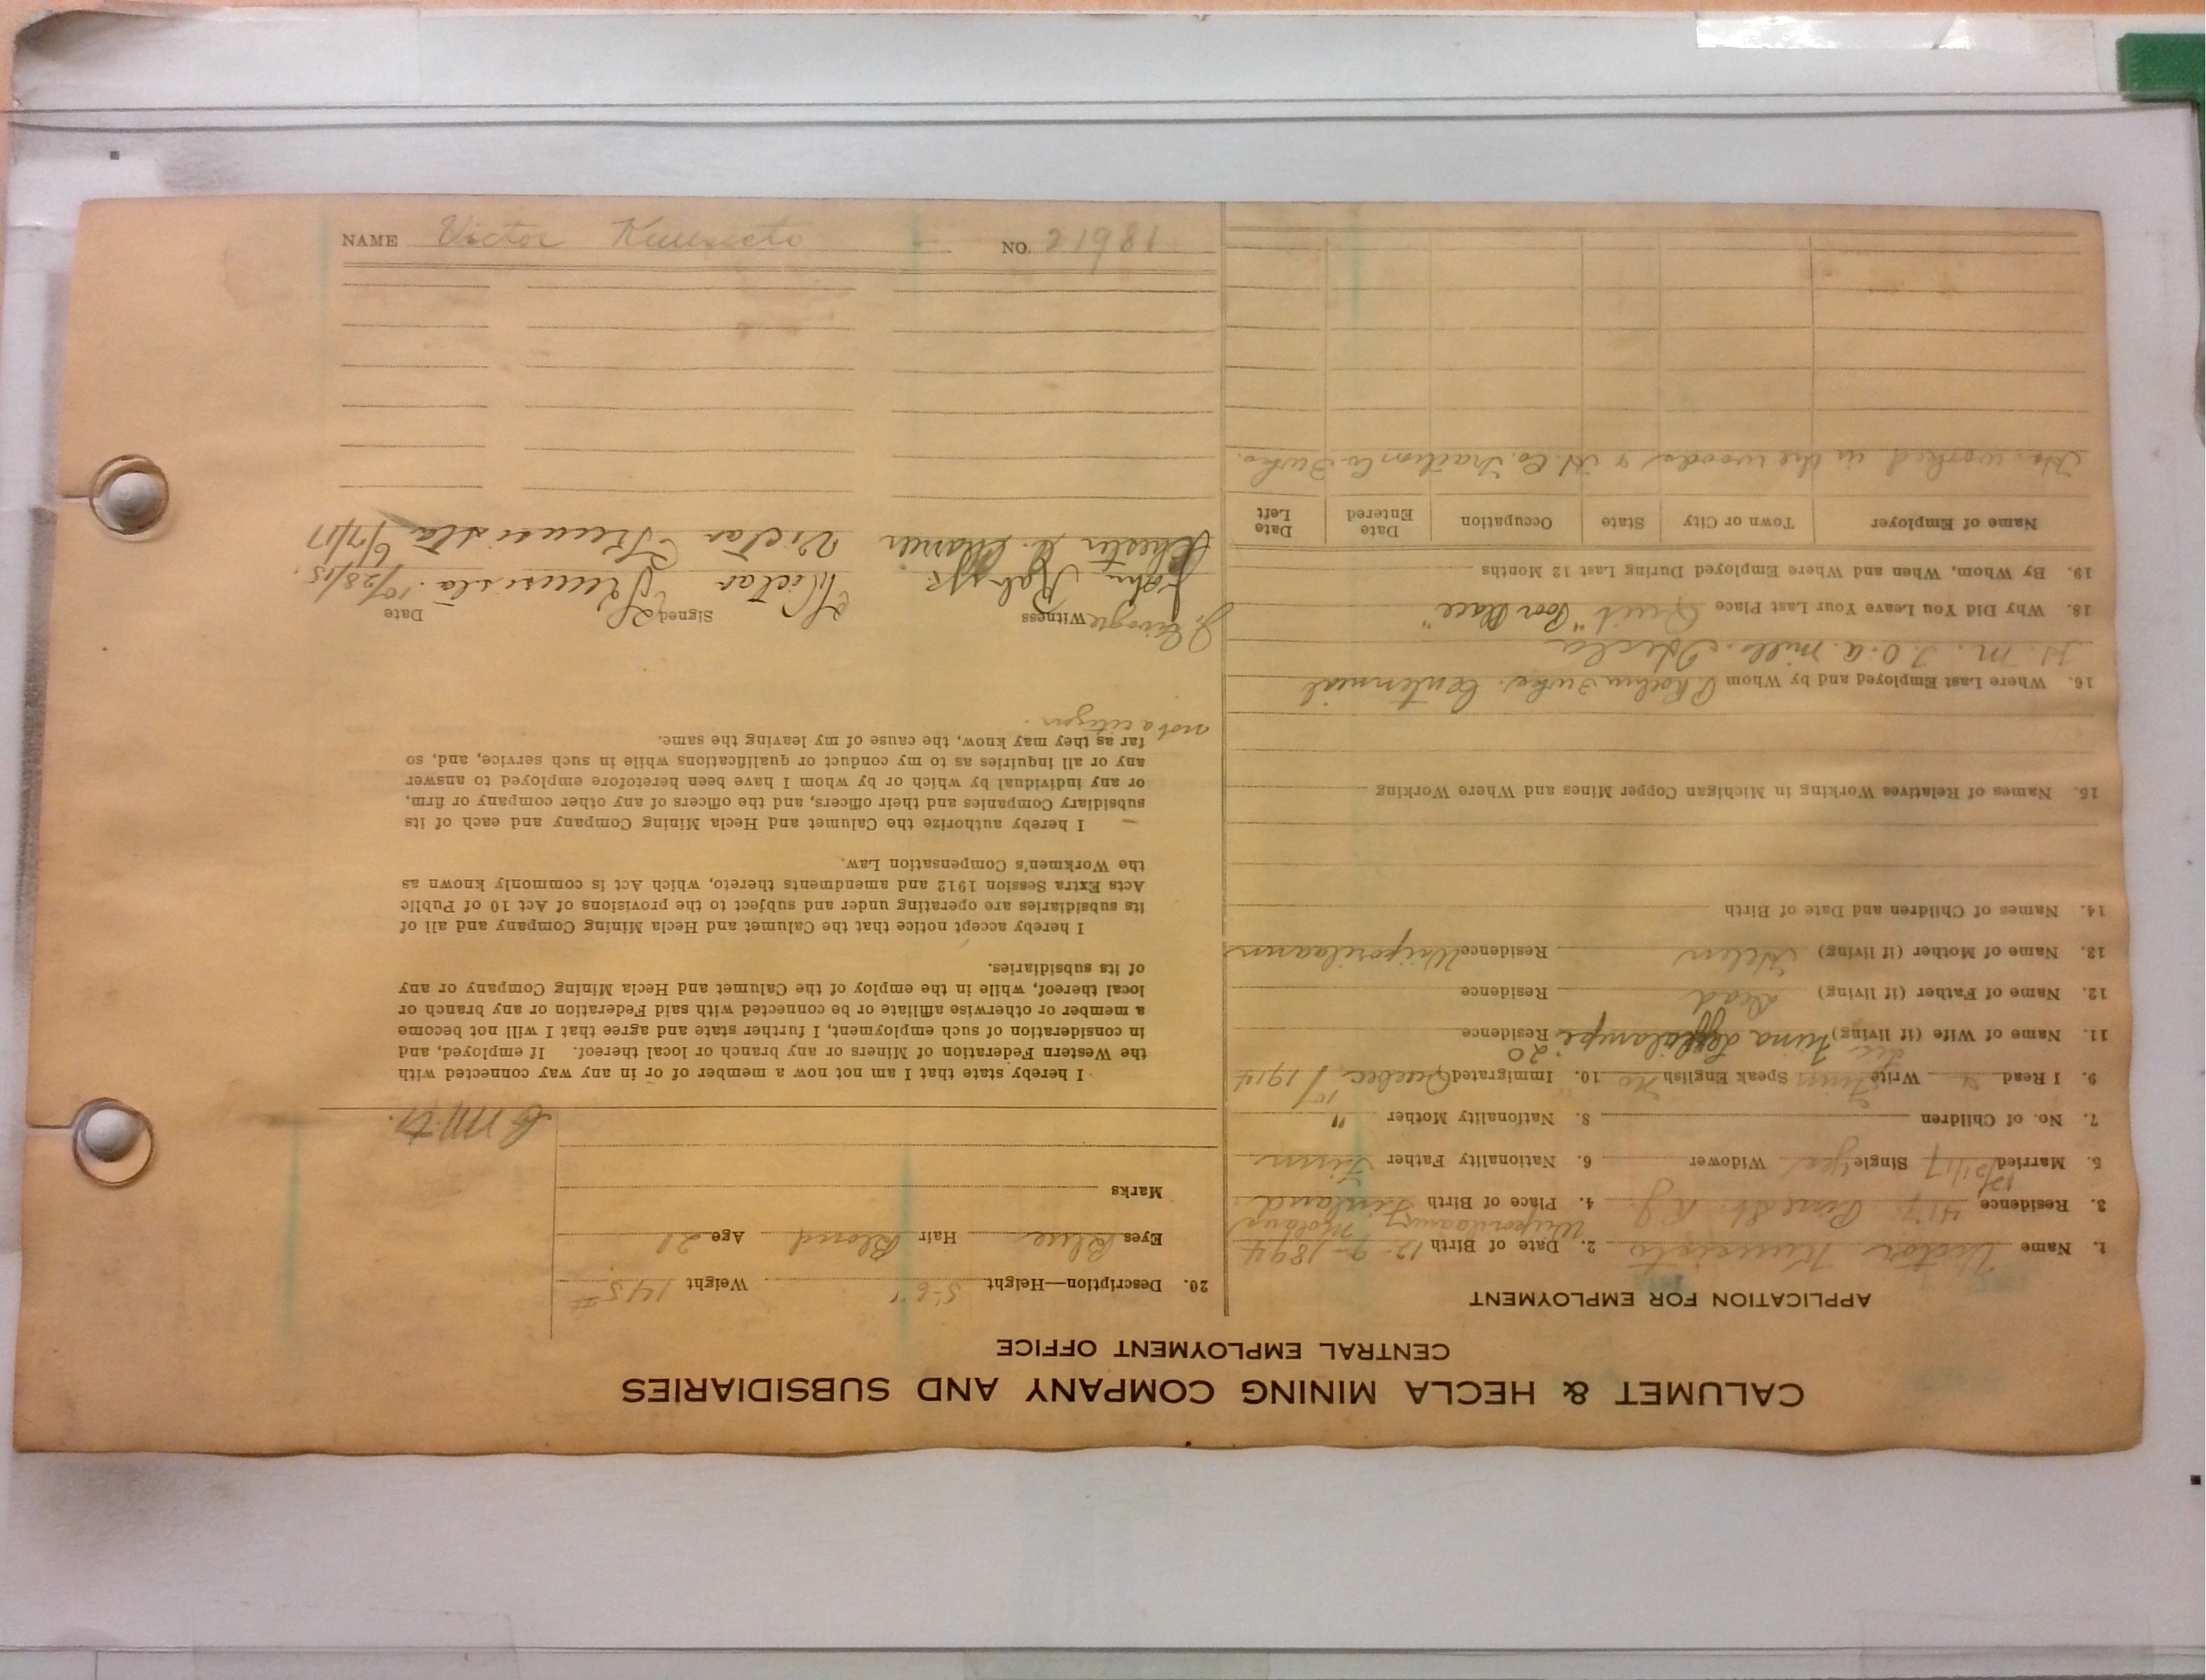 CALUMET & HECLA MINING COMPANY AND SUBSIDIARIES
CENTRAL EMPLOYMENT OFFICE
APPLICATION FOR EMPLOYMENT
1. Name Victor 2. Date of Birth 12-9-1894
3. Residence 417 Pine St. R.J. 4. Place of Birth Finland
5. Married Single yes Widower 6. Nationality Father Finn
7. No. of Children 8. Nationality Mother "
9. I Read Write Finn Speak English no 10. Immigrated Quebec 1914
11. Name of Wife (if living) Residence
12. Name of Father (if living) Dead Residence
13. Name of Mother (if living) Helen Residence
14. Names of Children and Date of Birth
15. Names of Relatives Working in Michigan Copper Mines and Where Working
16. Where Last Employed and by Whom Centennial
Hecla
18. Why Did You Leave Your Last Place Quit "Poor Place"
19. By Whom, When and Where Employed During Last 12 Months
Name of Employer Town or City State Occupation Date Entered Date Left
Has worked in the woods & H. Co. Traction Co. 3 wks.
20. Description—Height 5-6" Weight 145#
Eyes Blue Hair Blond Age 21
Marks
I hereby state that I am not now a member of or in any way connected with
the Western Federation of Miners or any branch or local thereof. If employed, and
in consideration of such employment, I further state and agree that I will not become
a member or otherwise affiliate or be connected with said Federation or any branch or
local thereof, while in the employ of the Calumet and Hecla Mining Company or any
of its subsidiaries.
I hereby accept notice that the Calumet and Hecla Mining Company and all of
its subsidiaries are operating under and subject to the provisions of Act 10 of Public
Acts Extra Session 1912 and amendments thereto, which Act is commonly known as
the Workmen's Compensation Law.
I hereby authorize the Calumet and Hecla Mining Company and each of its
subsidiary Companies and their officers, and the officers of any other company or firm,
or any individual by which or by whom I have been heretofore employed to answer
any or all inquiries as to my conduct or qualifications while in such service, and, so
far as they may know, the cause of my leaving the same.
not a citizen.
Witness Signed Date
John Victor 10/28/15.
Chester Victor 6/7/17
NAME Victor NO. 21981